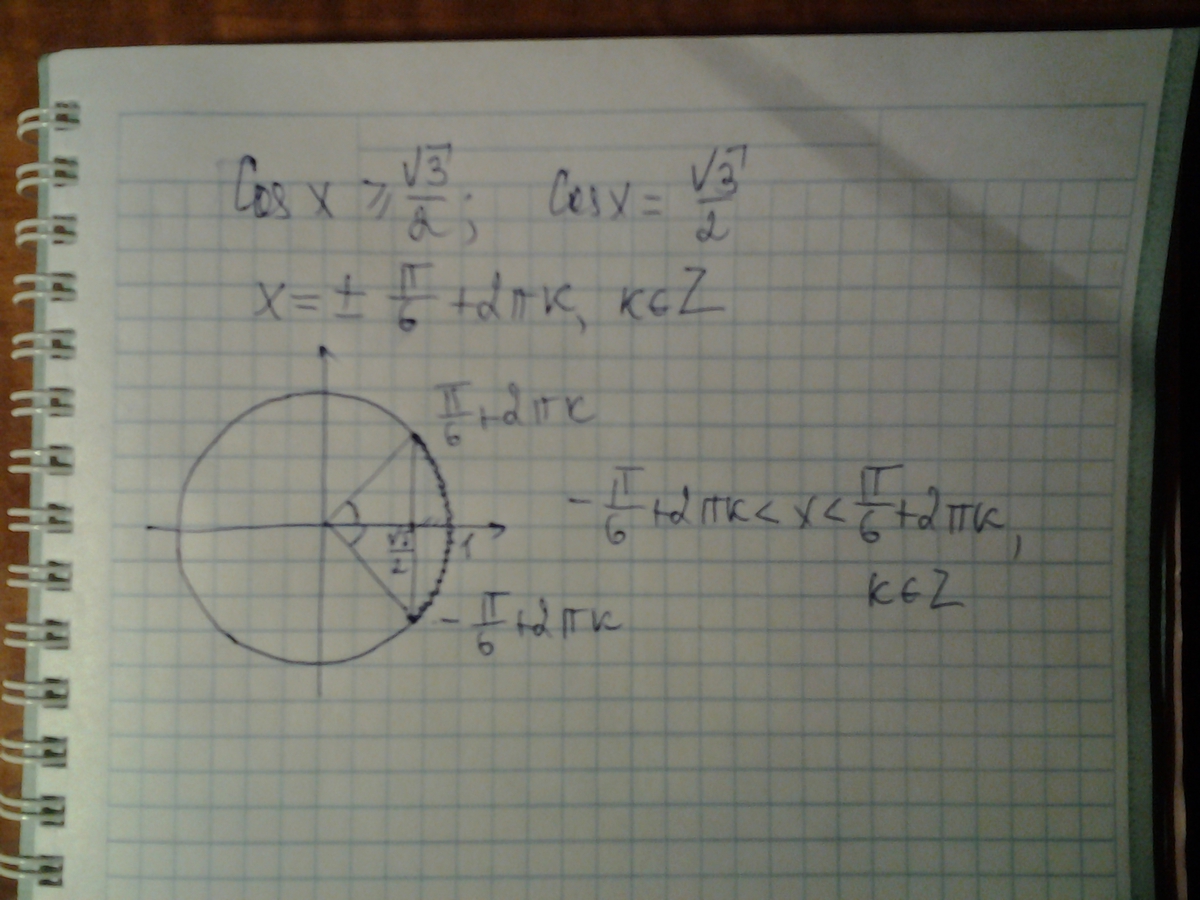 Cos x ⩾ √3/2; Cos x = √3/2
x = ± π/6 + 2πк, к∈Z
π/6 + 2πк
√3/2 1
-π/6 + 2πк
-π/6 + 2πк < x < π/6 + 2πк,
к∈Z